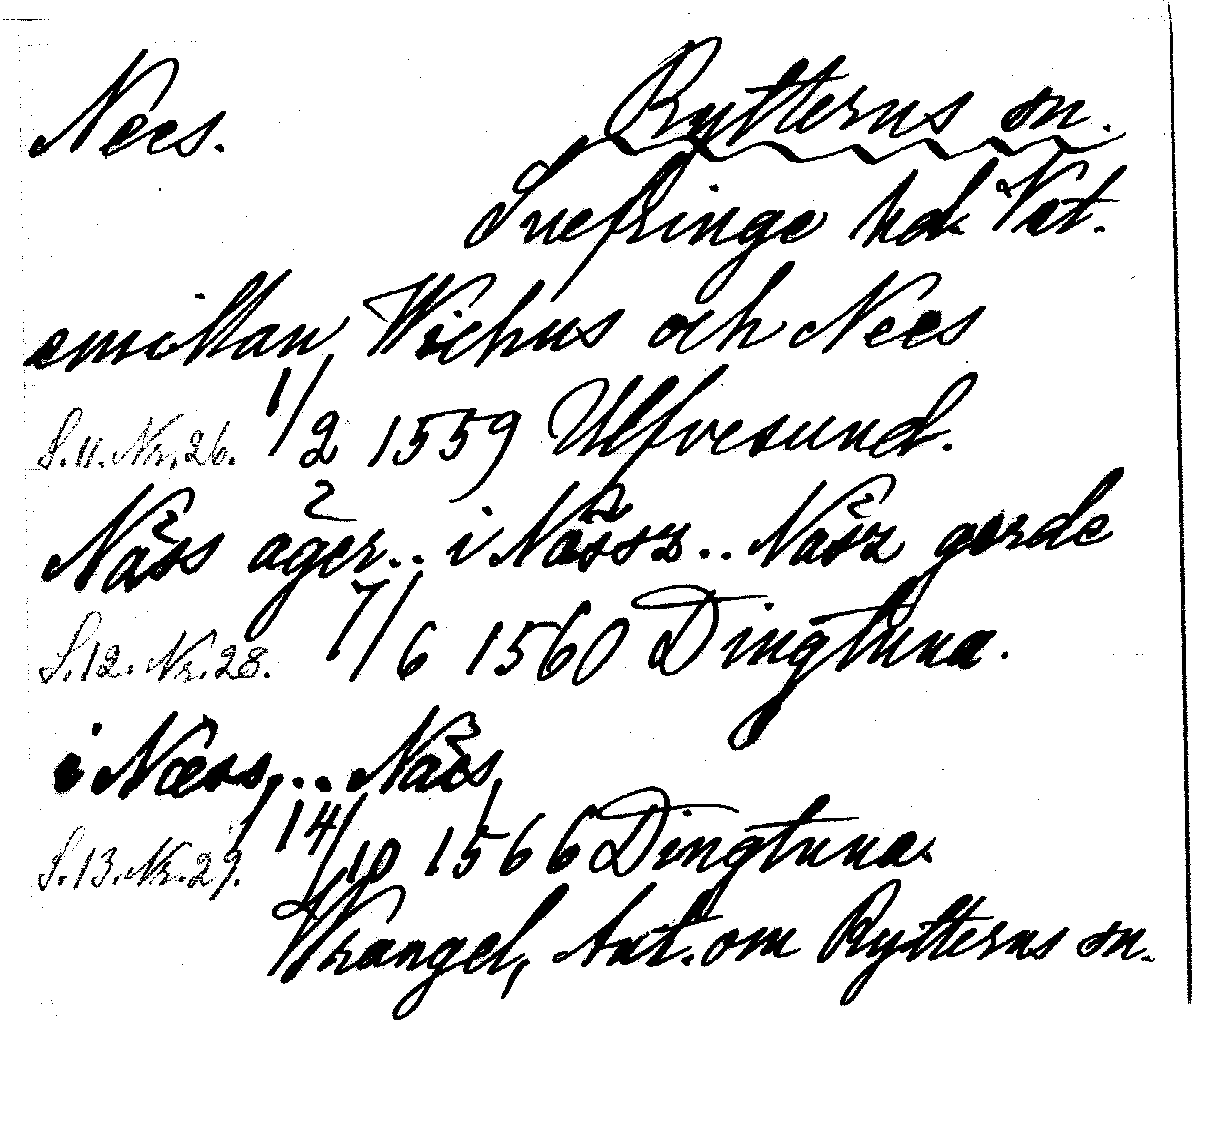 Nees. Rytterns sn.
Snefringe hd. Vst.
emillan Wichus och Nees
S.11. Nr. 26. 1/2 1559 Ulfvesund.
Näss äger.. i Nässz.. Näsz gerde
S.12. Nr. 28. 7/6 1560 Dingtuna.
i Næss, ... Näs,
S.13. Nr. 29. 14/10 1566 Dingtuna.
Wrangel, Ant. om Rytterns sn.